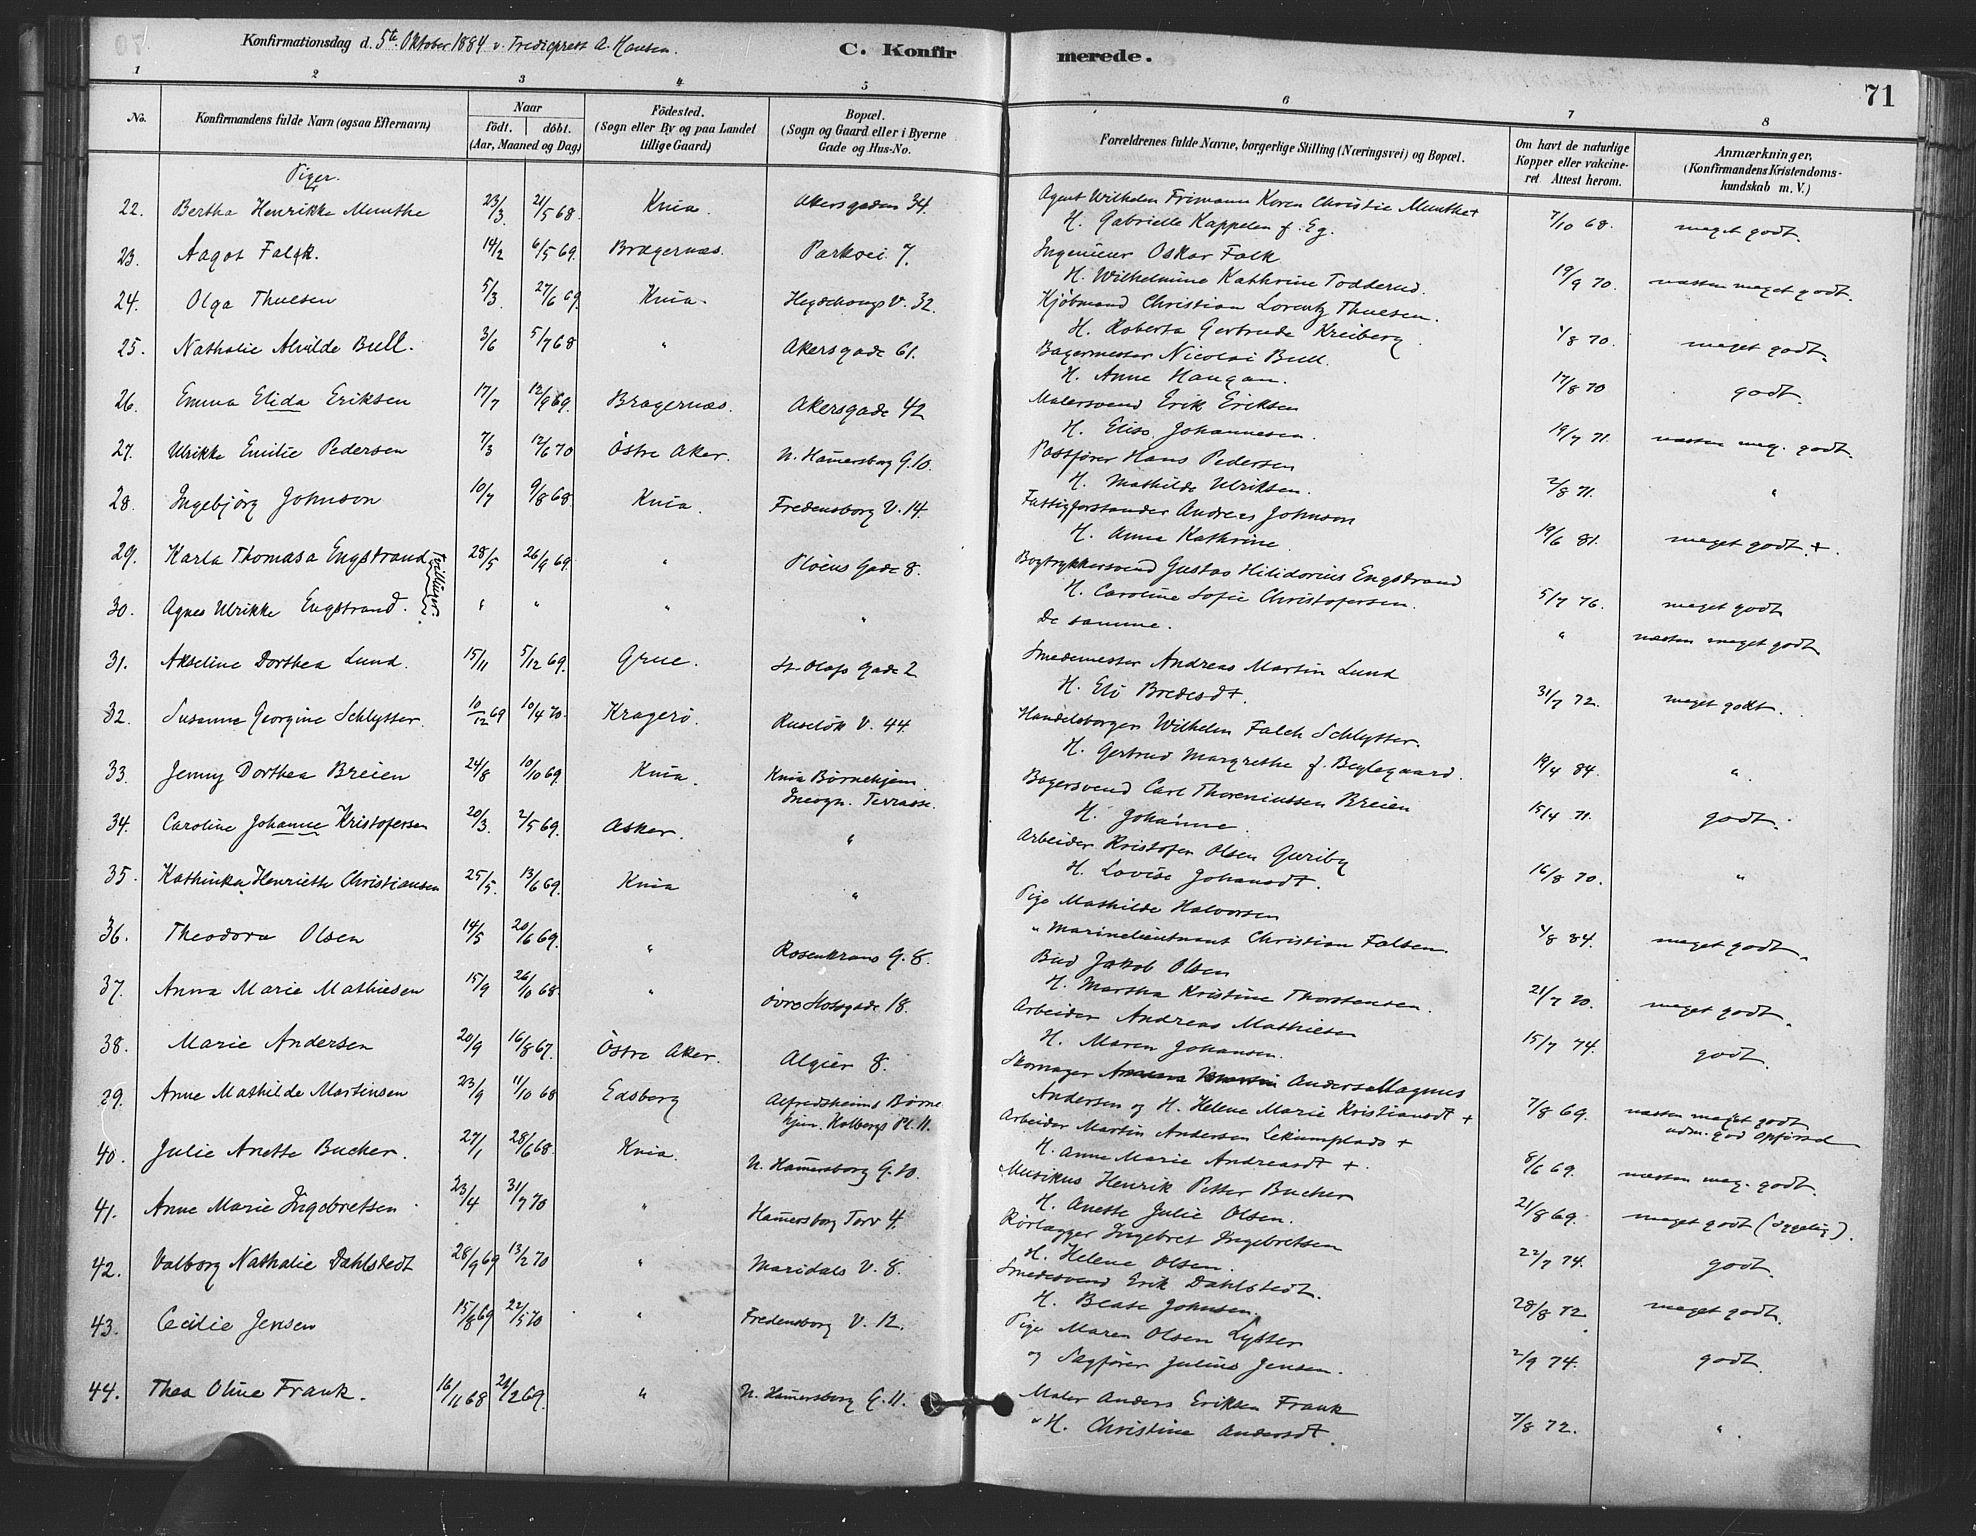 Konfirmationsdag d. 5te Oktober 1884 v. Trediepræst A. Hansen.
C. Konfirmerede.
71
1 2 3 4 5 6 7 8
No.
Konfirmandens fulde Navn (ogsaa Efternavn)
Naar
födt. döbt.
(Aar, Maaned og Dag)
Födested.
(Sogn eller By og paa Landet
tillige Gaard)
Bopæl.
(Sogn og Gaard eller i Byerne
Gade og Hus-No.
Forældrenes fulde Navne, borgerlige Stilling (Næringsvei) og Bopæl.
Om havt de naturlige
Kopper eller vakcine-
ret Attest herom.
Anmærkninger,
(Konfirmandens Kristendoms-
kundskab m. V.)
Piger.
22. Bertha Henrikke Munthe 23/3 21/5 68. Kria. Akersgaden 34. Agent Wilhelm Frimann Koren Christie Munthe +
H. Gabrielle Kappelen f. Eg. 7/10 68. meget godt.
23. Aagot Falck. 14/2 6/5 69. Bragernæs. Parkvei 7. Ingenieur Oskar Falk
H. Wilhelmine Kathrine Todderud. 19/9 70. næsten meget godt.
24. Olga Thuesen 5/3. 27/6 69. Kria. Hegdehougs V. 32. Kjöbmand Christian Lorentz Thuesen.
H. Roberta Gertrude Kreiberg. 1/8 70. meget godt.
25. Nathalie Alvilde Bull. 3/6 5/7 68 " Akersgade 61. Bagermester Nicolai Bull.
H. Anne Haugan. 17/8 70 godt.
26. Emma Elida Eriksen 17/7 12/9 69. Bragernæs. Akersgade 42 Malersvend Erik Eriksen
H. Elise Johannesen. 19/7 71. næsten meg. godt.
27. Ulrikke Emilie Pedersen 7/3 12/6 70 Östre Aker. N. Hamersborg G. 10. Postförer Hans Pedersen
H. Mathilde Ulriksen. 2/8 71. "
28. Ingebjörg Johnson 10/7 9/8 68. Kria. Fredensborg V. 14. Fattigforstander Andreas Johnson
H. Anna Kathrine. 19/6 81. meget godt. +.
29. Karla Thomasa Engstrand 28/5 26/9 69. " Ploens Gade 8. Bogtrykkersvend Gustav Hilidorius Engstrand
H. Caroline Sofie Christofersen. 5/7 76. meget godt
Tvillinger.
30. Agnes Ulrikke Engstrand. " " " " De samme. " næsten meget godt
31. Akseline Dorthea Lund. 15/11 5/12 69. Grue. St. Olafs Gade 2 Smedemester Andreas Martin Lund
H. Eli Bredesdt. 31/7 72. meget godt.
32. Susanne Georgine Schlytter. 10/12 69 10/4 70. Kragerö. Ruselök V. 44. Handelsborger Wilhelm Falch Schlytter.
H. Gertrud Margrethe f. Beylegaard. 19/4 84. "
33. Jenny Dorthea Breien 24/8 10/10 69. Kria. Kria Börnehjem Bagersvend Carl Thoreniussen Breien
Incogn. Terrasse. H. Johanne. 15/4 71. godt.
34. Caroline Johanne Kristofersen 20/3. 2/5 69. Asker. " Arbeider Kristofer Olsen Guriby
H. Lovise Johansdt. 16/8 70. "
35. Kathinka Henriette Christiansen 25/5. 13/6 69. Kria " Pige Mathilde Halvorsen
" Marinelieutnant Christian Falsen 4/8 84. meget godt.
36. Theodora Olsen 14/5 20/6 69. " Rosenkrans G. 8. Bud Jakob Olsen
H. Martha Kristine Thorstensen. 21/7 70. meget godt.
37. Anna Marie Mathiesen 15/9 26/10 68. " Övre Slotsgade 18. Arbeider Andreas Mathiesen
H. Maren Johansen. 15/7 74. godt.
38. Marie Andersen 20/9 16/8 67. Östre Aker. Algier 8. Skomager Anders Magnus
Andersen og H. Helene Marie Kristiansdt + 7/8 69. næsten meget godt
udm. god Opförsel
29. Anne Mathilde Martinsen 23/9 11/10 68 Edsberg Alfredsheims Börne Arbeider Martin Andersen Lekumplads +
hjem. Holbergs Pl. 11. H. Anne Marie Andreasdt +. 8/6 69. næsten meg. godt.
40. Julie Anette Bucher. 27/1 28/6 68. Kria. N. Hamersborg G. 10. Musikus Henrik Petter Bucher
H. Anette Julie Olsen. 21/8 69. meget godt (sygelig).
41. Anne Marie Ingebretsen 23/4 31/7 70 " Hamersborg Torv 4. Rörlægger Ingebret Ingebretsen
H. Helene Olsen. 22/7 74. godt.
42. Valborg Nathalie Dahlstedt 28/9 69 13/2 70 " Maridals V. 8. Smedesvend Erik Dahlstedt.
H. Beate Johnsen. 28/8 72 meget godt.
43. Cecilie Jensen 15/8 69 22/5 70 " Fredensborg V. 12. Pige Maren Olsen Lytter
og Sagförer Julius Jensen. 2/9 74. godt
44. Thea Oline Frank. 16/11 68 21/2 69. " N. Hamersborg G. 11. Maler Anders Eriksen Frank
" H. Christine Andersdt. 7/8 72. "